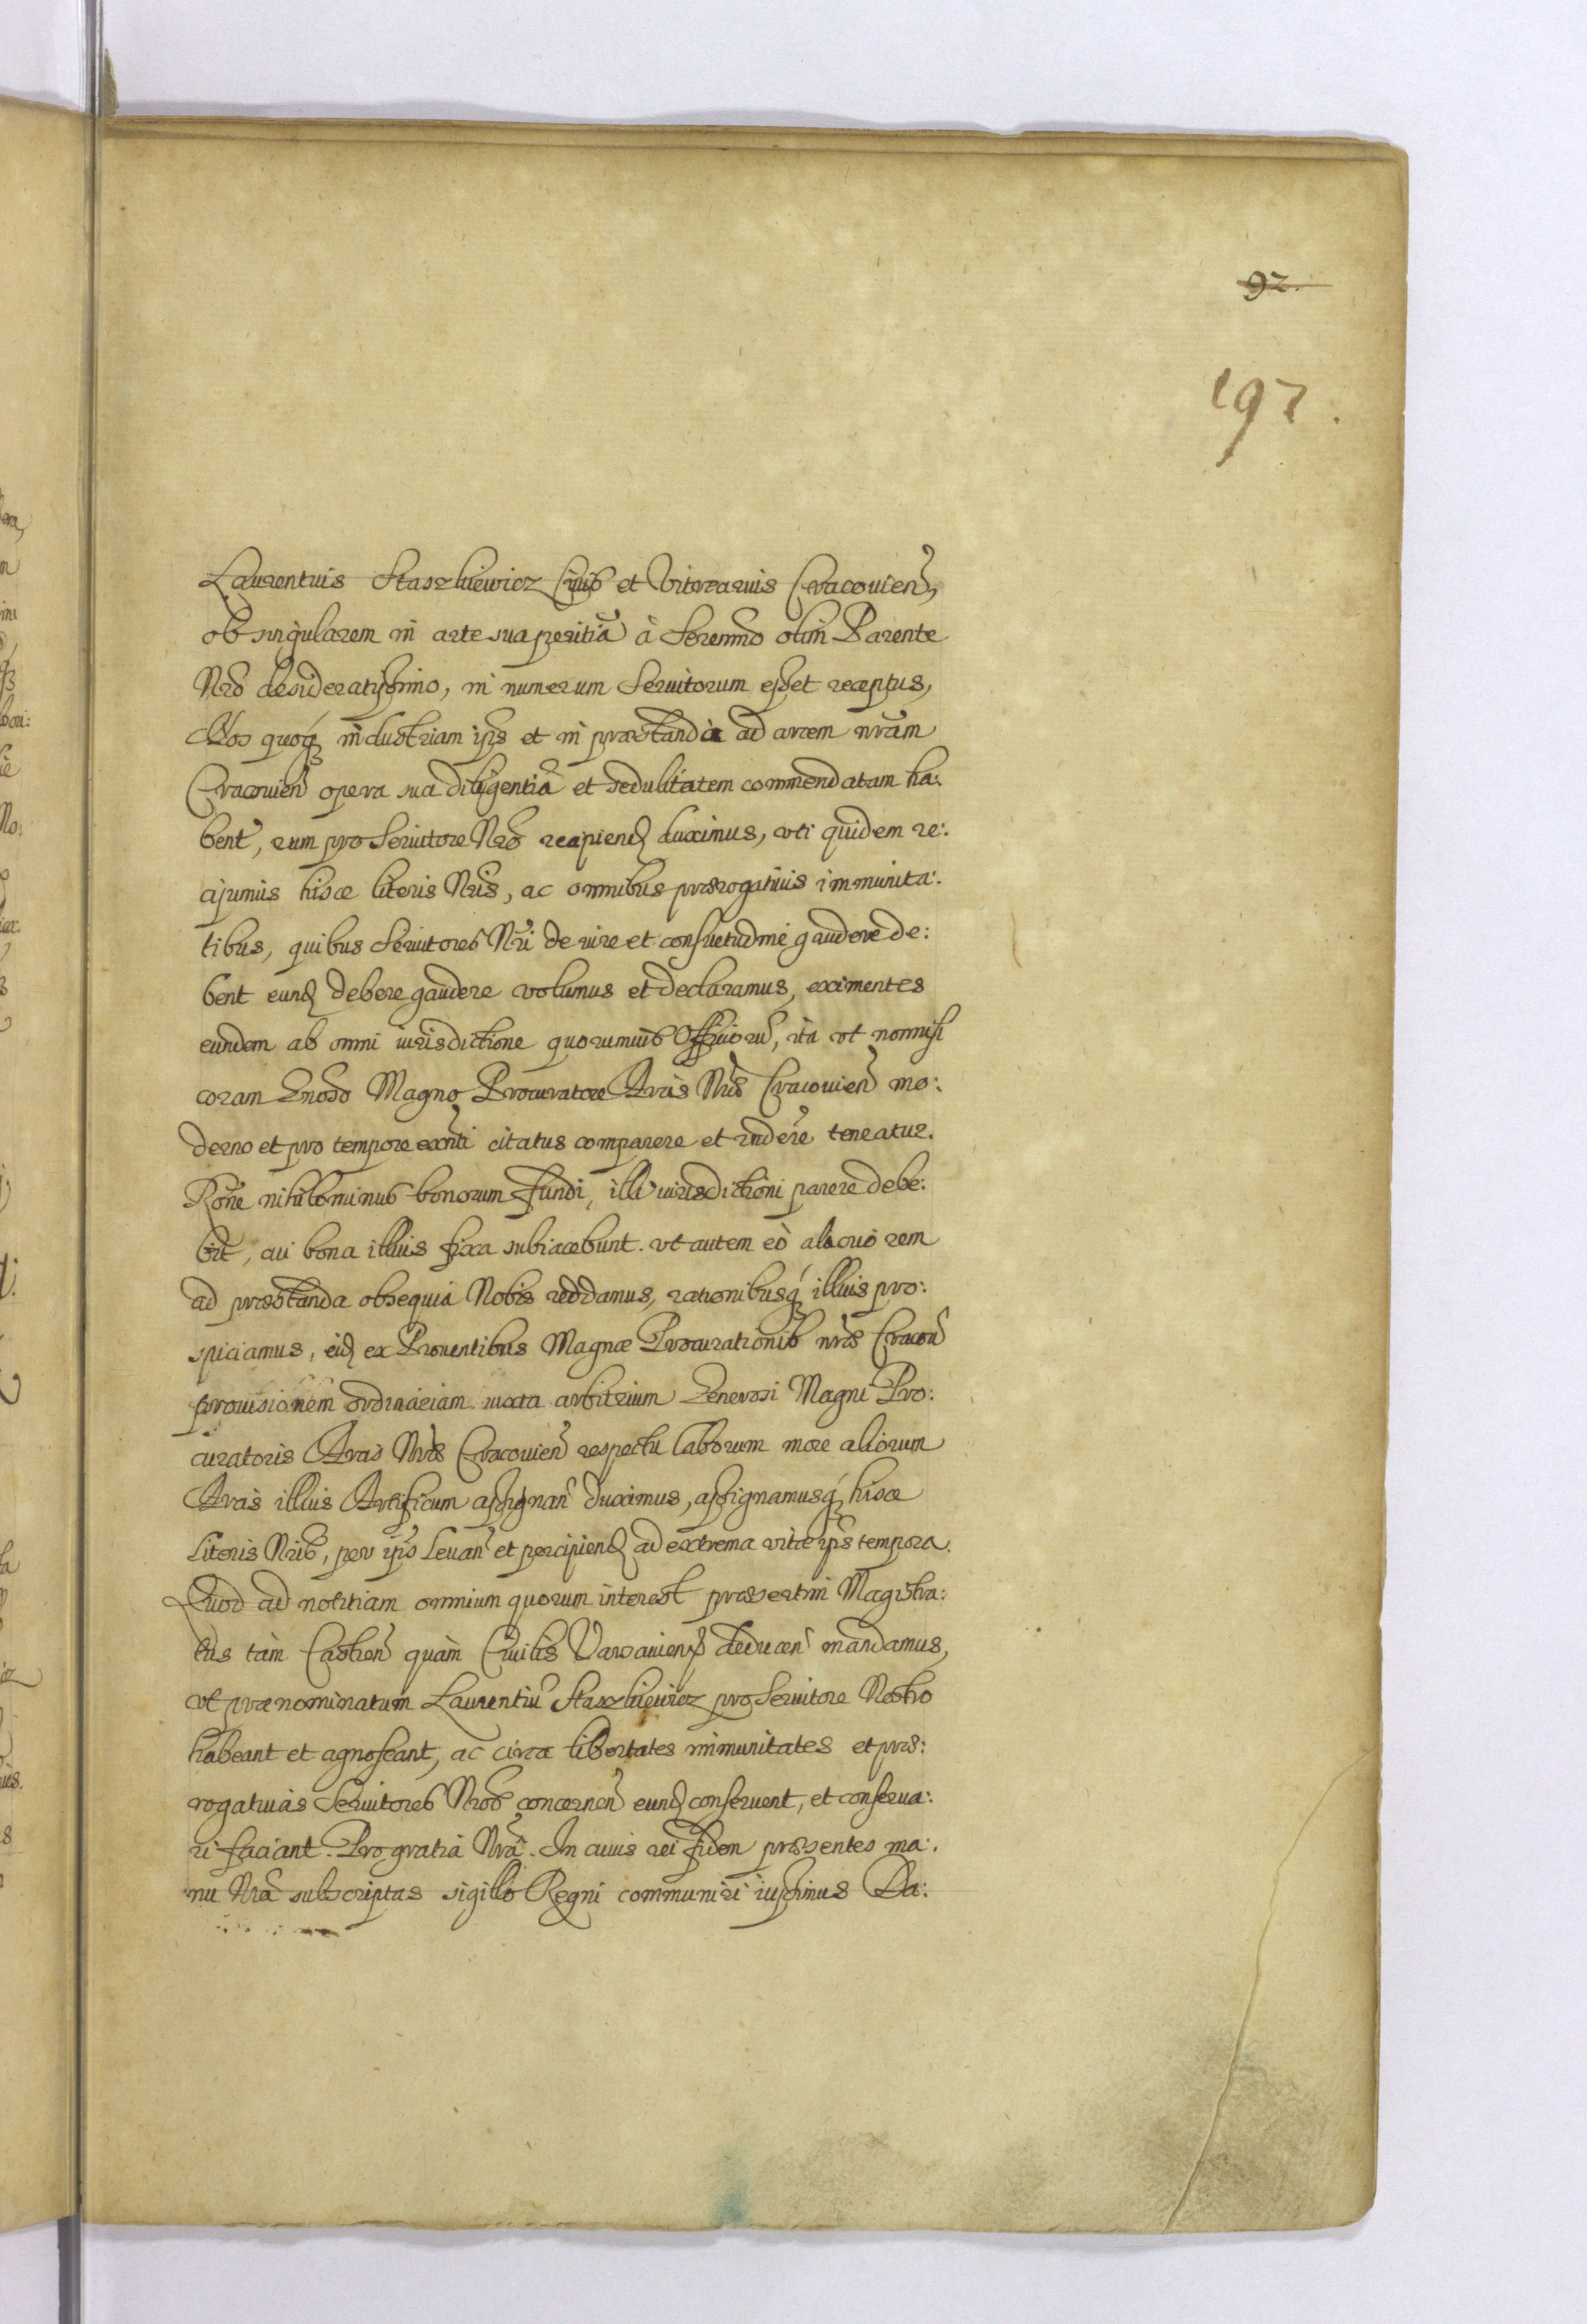 92.
197.
Laurentius Staszkiewicz Civis et Vitrearius Cracovien̄,
ob singularem in arte sua peritiā à Serenmo olim Parente
Nro desideratissimo, in numerum Servitorum esset receptus,
Nos quoq́ industriam ips et in præstanda ad arcem nram
Cracovien̄ opera sua diligentiā et sedulitatem commendatam ha:
bent, eum pro Servitore Nro recipiend duximus, uti quidem re:
cipimus hisce literis Nris, ac omnibus prærogativis immunita:
tibus, quibus Servitores Nri de iure et consuetudine gaudere de:
bent eund debere gaudere volumus et declaramus, eximentes
eundem ab omni iurisdictione quorumvis Officiorū, ita ut nonnisi
coram Gnoso Magno Procuratore Arcis Nræ Cracovien̄ mo:
derno et pro tempore exnti citatus comparere et rndere teneatur.
Rone nihilominus bonorum fundi, illi iurisdictioni parere debe:
bit, cui bona illius fixa subiacebunt. ut autem eò alacriorem
ad præstanda obsequia Nobis reddamus, rationibusq́ illius pro:
spiciamus, eid ex Proventibus Magnæ Procurationis nræ Cracovn̄
provisionem ordinariam iuxta arbitrium Generosi Magni Pro:
curatoris Arcis Nræ Cracovien̄ respectu laborum more aliorum
Arcis illius Artificum assignan̄ duximus, assignamusq́ hisce
Literis Nris, per ips Levan̄ et percipiend ad extrema vitæ ips tempora.
Quod ad notitiam omnium quorum interest præsertim Magistra:
tus tàm Castren̄ quàm Civilis Varsavien̄ deducen̄ mandamus,
ut prænominatum Laurentiū Staszkiewicz pro Servitore Nostro
habeant et agnoscant, ac circa libertates immunitates et præ:
rogativas Servitores Nros concernen̄ eund conservent, et conserva:
ri faciant. Pro gratia Nra. In cuius rei fidem præsentes ma:
nu Nra subscriptas sigillo Regni communiri iussimus Da: